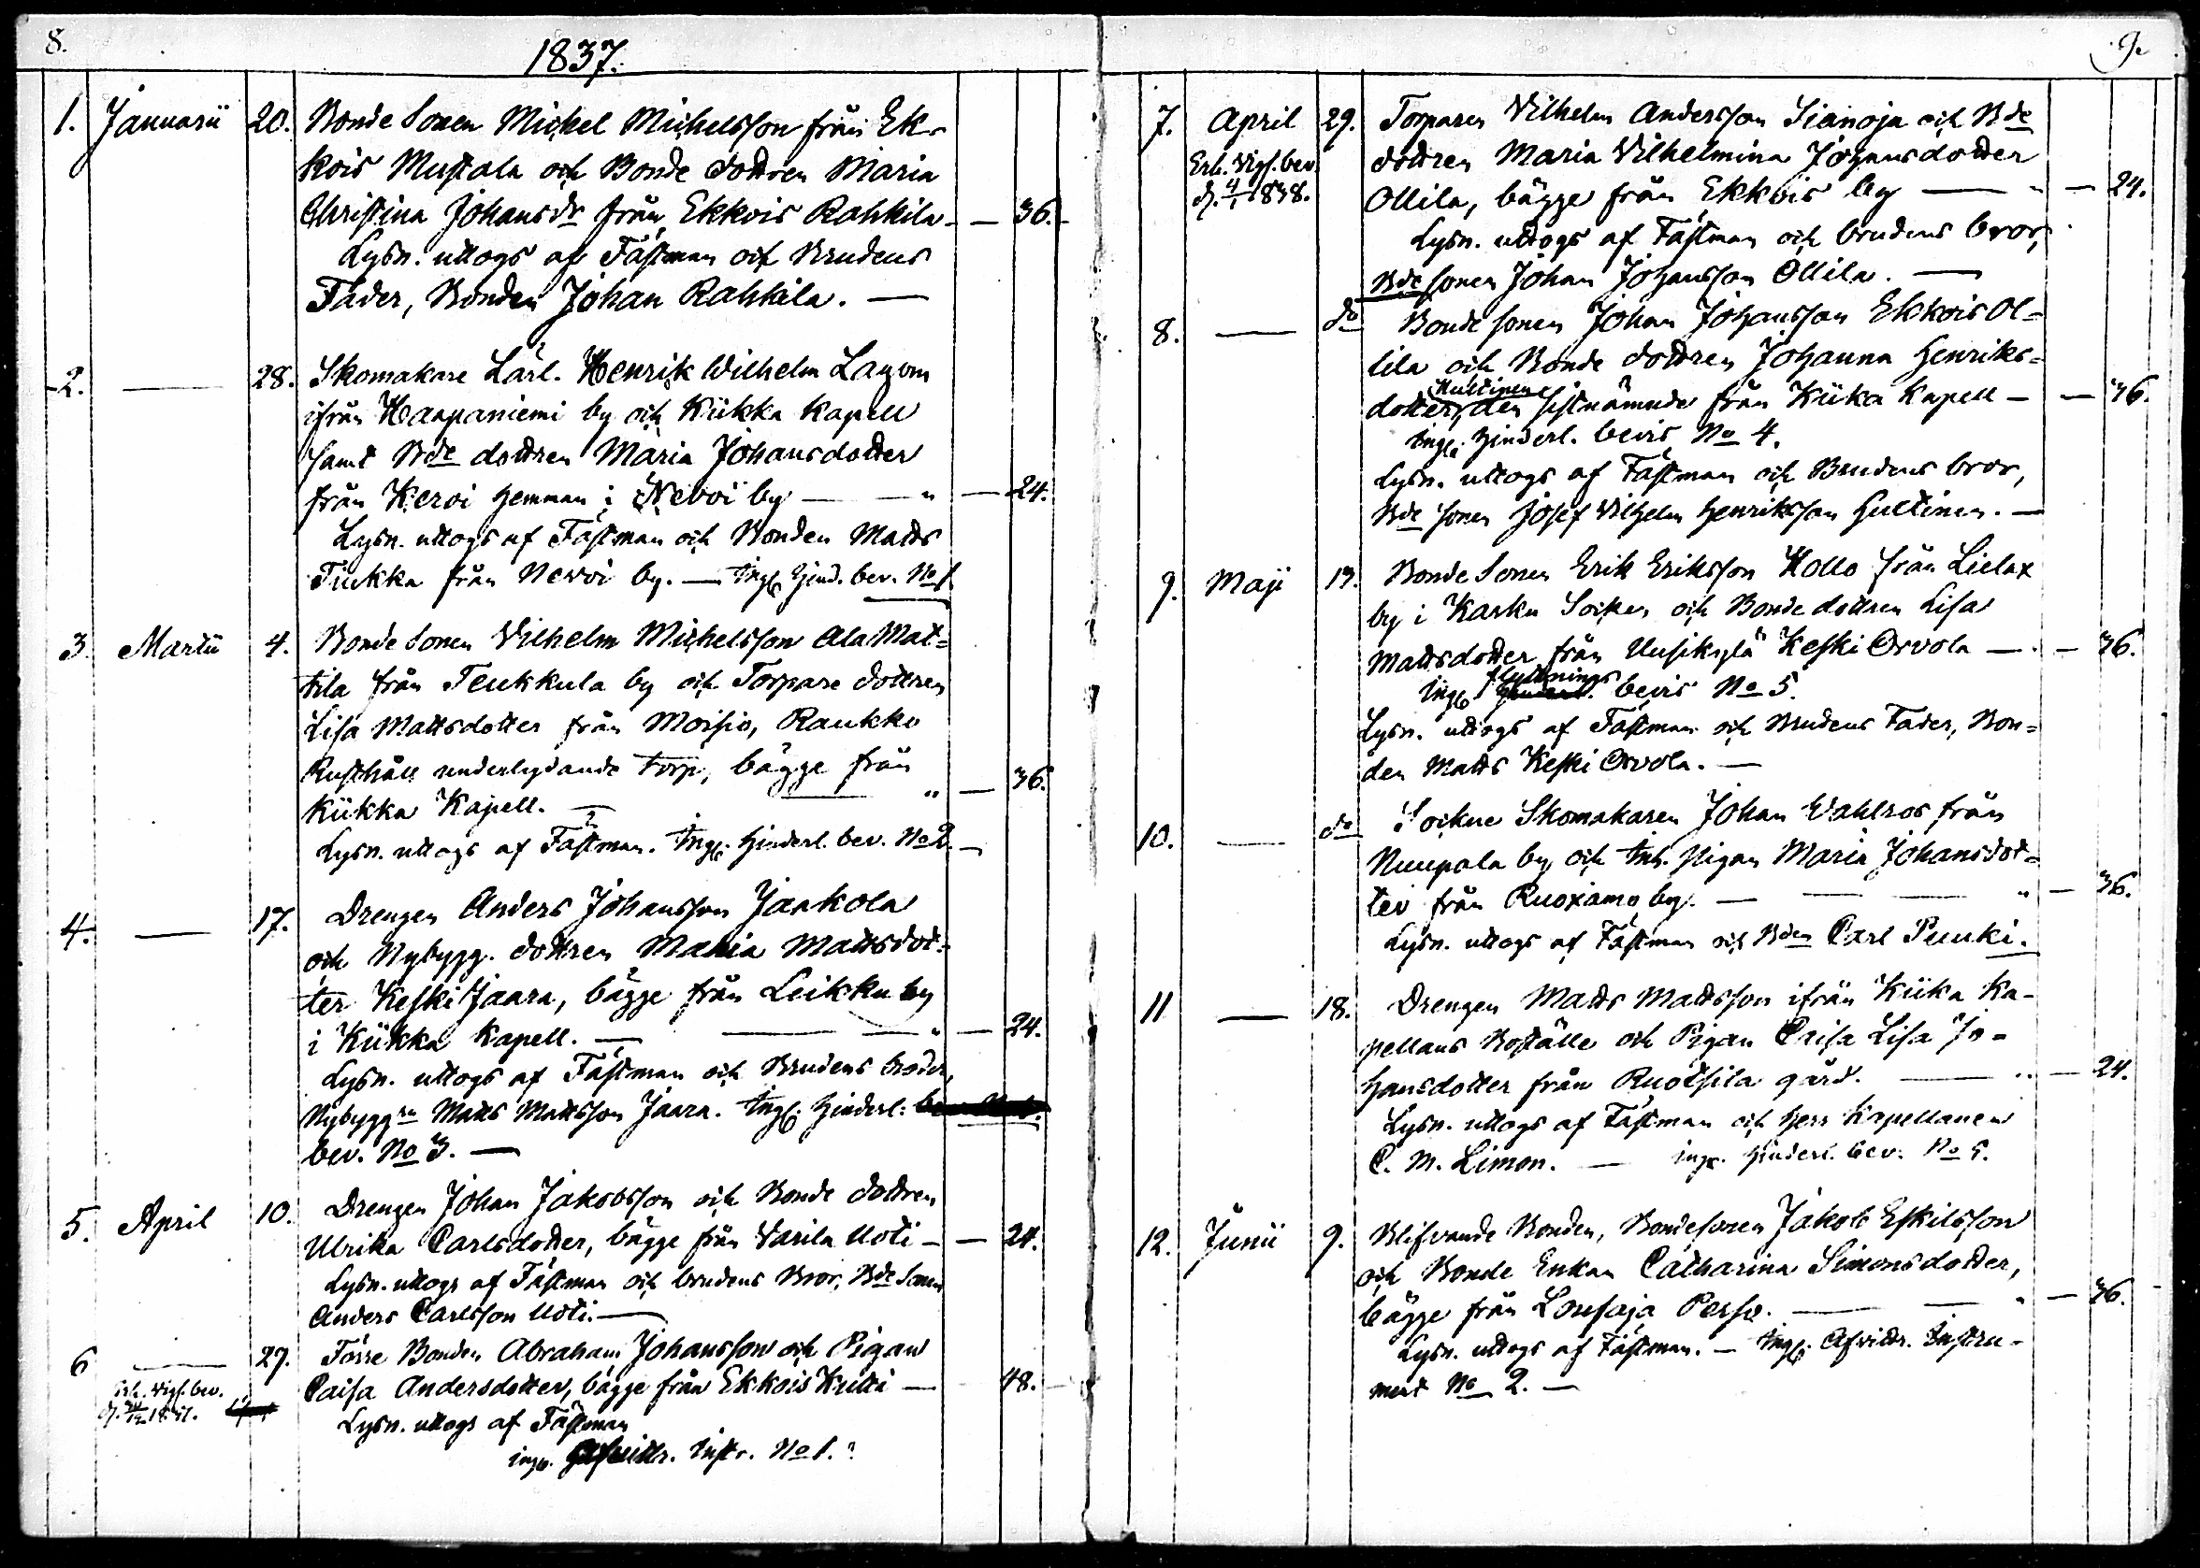 8.
1837.
1. Januarii 20. Bonde Sonen Michel Michelsson från Ek-
kois Mustala och Bonde dottren Maria
Christina Johansdr från Ekkois Rahkila - — 36.
Lysn. uttogs af Fästman och Brudens
Fader, Bonden Johan Rahkila. —
2. — 28. Skomakare Lärl. Henrik Wilhelm Lagom
ifrån Haapaniemi by och Kiikka Kapell
samt Bde dottren Maria Johansdotter
från Keroi hemman i Nevoi by — " — 24.
Lysn. uttogs af Fästman och Bonden Matts
Tiukka från Nevoi by. — Ingf. hind. bev. No 1
3. Martii 4. Bonde Sonen Vilhelm Michelsson Ala Mat=
tila från Teukkula by och Torpare dottren
Lisa Mattsdotter från Moisio, Raukko
Rusthåll underlydande torp, bägge från
Kiikka Kapell. — " — 36.
Lysn. uttogs af Fästman. Ingf. hinderl. bev. No 2. —
4. — 17. Drengen Anders Johansson Jaakola
och Nybygg. dottren Maria Mattsdot=
ter Keski Jaara, bägge från Leikku by
i Kiikka Kapell. — — " — 24.
Lysn. uttogs af Fästman och Brudens broder,
Nybyggrn Matts Mattsson Jaara. Ingf. hinderl:
bev. No 3. —
5. April 10. Drengen Johan Jakobsson och Bonde dottren
Ulrika Carlsdotter, bägge från Varila Uoti — — 24.
Lysn. uttogs af Fästman och brudens Bror, Bde Sonen
Anders Carlsson Uoti. —
6 — 27. Förre Bonden Abraham Johansson och Pigan
Erh. vigs. bev. Caisa Andersdotter, bägge från Ekkois Kutti — 48.
Lysn. uttogs af Fästman
ingf. Afvittr. Instr. No 1.
9.
7. April 29. Torparen Vilhelm Andersson Sianoja och Bde
Erh. Vigs. bev. dottren Maria Vilhelmina Johansdotter
d. 4/1 1838. Ollila, bägge från Ekkois by — " — 24.
Lysn. uttogs af Fästman och brudens bror,
Bde sonen Johan Johansson Ollila. —
8. — do Bonde sonen Johan Johansson Ekkois Ol=
lila och Bonde dottren Johanna Henriks=
Hultinen
dotter, den sistnämnde från Kiika Kapell — — 36.
Ingf. hinderl. bevis No 4.
Lysn. uttogs af Fästman och Brudens bror,
Bde sonen Josef Vilhelm Henriksson Hultinen. —
9. Maji 13. Bonde Sonen Erik Eriksson Hollo från Lielax
by i Karku Socken och Bonde dottren Lisa
Mattsdotter från Uusikylä Keski Orvola — — 36.
flyttnings
Ingf. hinderl. bevis No 5.
Lysn. uttogs af Fästman och Brudens Fader, Bon=
den Matts Keski Orvola. —
10. — do Sockne Skomakaren Johan Vahlros från
Nuupala by och Inh. Pigan Maria Johansdot=
ter från Ruoxamo by. — — " — 36.
Lysn. uttogs af Fästman och Bden Carl Puuki.
11 — 18. Drengen Matts Mattsson ifrån Kiika Ka-
pellans Boställe och Pigan Caisa Lisa Jo=
hansdotter från Ruotsila gård. — " — 24.
Lysn. uttogs af Fästman och Herr Kapellanen
C. M. Limon. — ingf. hinderl. bev. No 5.
12. Junii 9. Blifvande Bonden, Bondesonen Jakob Eskilsson
och Bonde Enkan Catharina Simonsdotter,
bägge från Lousaja Perho. — — " — 36.
Lysn. uttogs af Fästman. — Ingf. Afvittr. Instru-
ment No 2. —